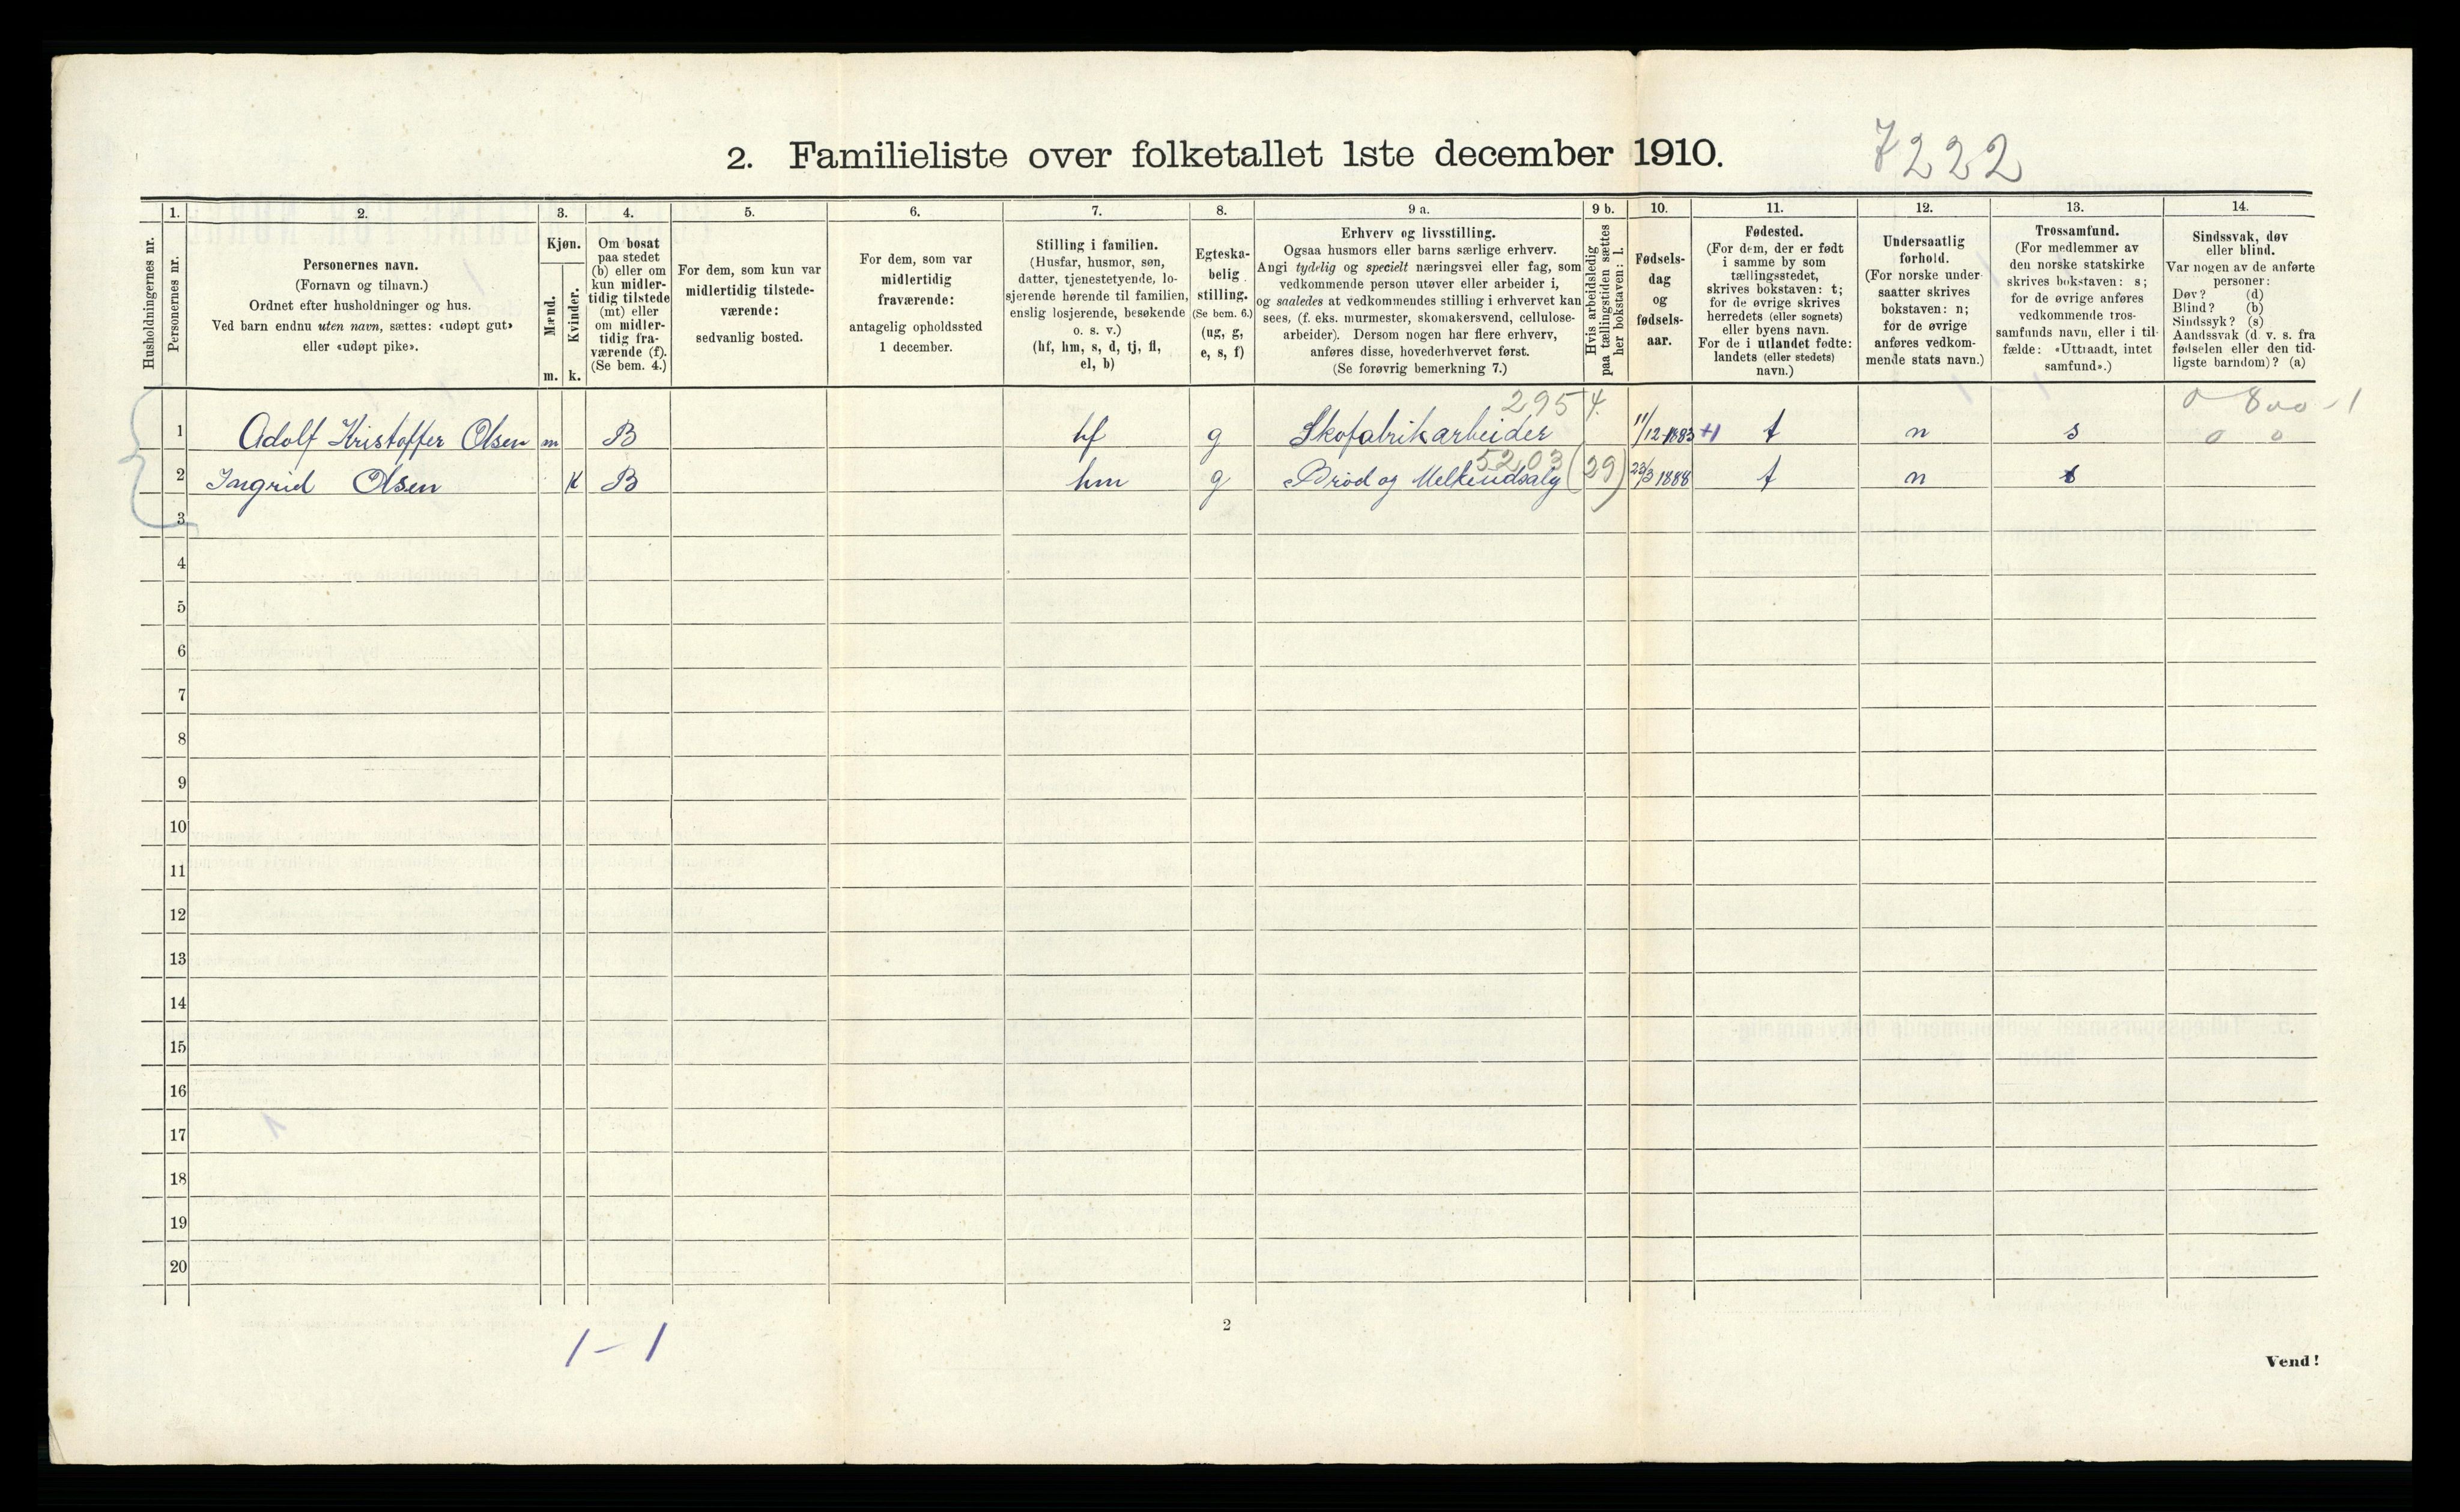 2. Familieliste over folketallet 1ste december 1910.
7222
Husholdningernes nr.
1.
Personernes nr.
2.
Personernes navn.
(Fornavn og tilnavn.)
Ordnet efter husholdninger og hus.
Ved barn endnu uten navn, sættes: «udøpt gut»
eller «udøpt pike».
3.
Kjøn.
Mænd.
Kvinder.
m. k.
4.
Om bosat
paa stedet
(b) eller om
kun midler-
tidig tilstede
(mt) eller
om midler-
tidig fra-
værende (f).
(Se bem. 4.)
5.
For dem, som kun var
midlertidig tilstede-
værende:
sedvanlig bosted.
6.
For dem, som var
midlertidig
fraværende:
antagelig opholdssted
1 december.
7.
Stilling i familien.
(Husfar, husmor, søn,
datter, tjenestetyende, lo-
sjerende hørende til familien,
enslig losjerende, besøkende
o. s. v.)
(hf, hm, s, d, tj, fl,
el, b)
8.
Egteska-
belig
stilling.
(Se bem. 6.)
(ug, g,
e, s, f)
9 a.
Erhverv og livsstilling.
Ogsaa husmors eller barns særlige erhverv.
Angi tydelig og specielt næringsvei eller fag, som
vedkommende person utøver eller arbeider i,
og saaledes at vedkommendes stilling i erhvervet kan
sees, (f. eks. murmester, skomakersvend, cellulose-
arbeider). Dersom nogen har flere erhverv,
anføres disse, hovederhvervet først.
(Se forøvrig bemerkning 7.)
9 b.
Hvis arbeidsledig
paa tællingstiden sættes
her bokstaven: l.
10.
Fødsels-
dag
og
fødsels-
aar.
11.
Fødested.
(For dem, der er født
i samme by som
tællingsstedet,
skrives bokstaven: t;
for de øvrige skrives
herredets (eller sognets)
eller byens navn.
For de i utlandet fødte:
landets (eller stedets)
navn.)
12.
Undersaatlig
forhold.
(For norske under-
saatter skrives
bokstaven: n;
for de øvrige
anføres vedkom-
mende stats navn.)
13.
Trossamfund.
(For medlemmer av
den norske statskirke
skrives bokstaven: s;
for de øvrige anføres
vedkommende tros-
samfunds navn, eller i til-
fælde: «Uttraadt, intet
samfund».)
14.
Sindssvak, døv
eller blind.
Var nogen av de anførte
personer:
Døv? (d)
Blind? (b)
Sindssyk? (s)
Aandssvak (d. v. s. fra
fødselen eller den tid-
ligste barndom)? (a)
295 4. 0 800-1
1 Adolf Kristoffer Olsen m B hf g Skofabrikarbeider 11/12-1883 +1 t n s 0 0
5203 (29)
2 Ingrid Olsen K B hm g Brød og Melkeudsalg 23/3 1888 t n s
3
4
5
6
7
8
9
10
11
12
13
14
15
16
17
18
19
20
1-1
2
Vend!